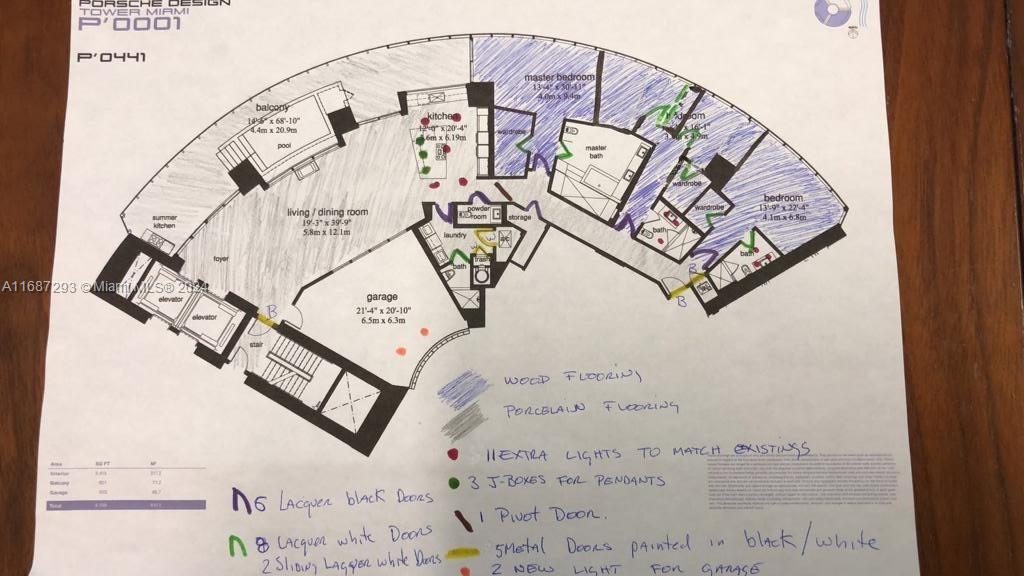 PORSCHE DESIGN
TOWER MIAMI
P'0001
P'0441
balcony
14'-6" x 68'-10"
4.4m x 20.9m
pool
kitchen
master bedroom
wardrobe
master
bath
wardrobe
wardrobe
bedroom
13'-9" x 22'-4"
4.1m x 6.8m
bath
bath
summer
kitchen
living / dining room
19'-3" x 39'-9"
5.8m x 12.1m
powder
room
storage
laundry
bath
trash
foyer
elevator
elevator
stair
garage
21'-4" x 20'-10"
6.5m x 6.3m
B
B
B
A11687293 © Miami MLS © 2024
WOOD FLOORING
PORCELAIN FLOORING
11 EXTRA LIGHTS TO MATCH EXISTINGS
3 J-BOXES FOR PENDANTS
1 PIVOT DOOR.
5 METAL DOORS painted in black/white
2 NEW LIGHT FOR GARAGE
6 LACQUER black DOORS
8 LACQUER white DOORS
2 SLIDING LACQUER white DOORS
Area SQ FT M²
Interior
Balcony
Garage
Total